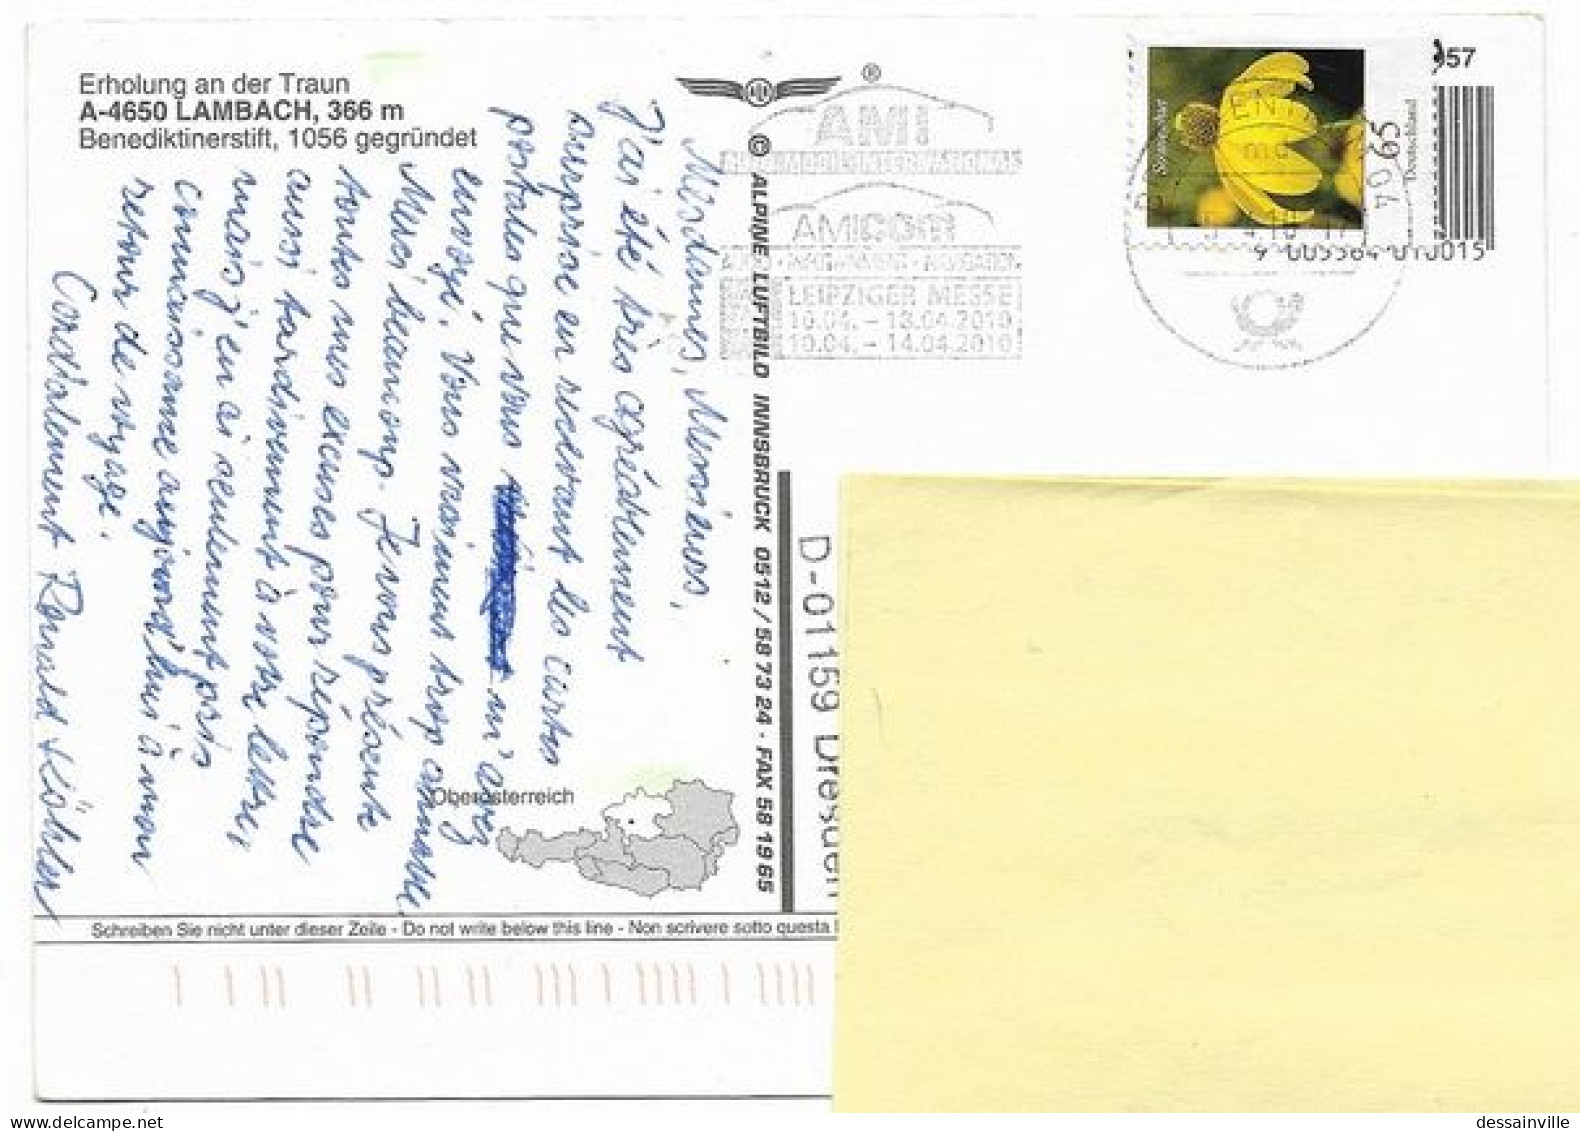 Erholung an der Traun
A-4650 LAMBACH, 366 m
Benediktinerstift, 1056 gegründet
Mesdames, Messieurs,
J'ai été très agréablement
surprise en recevant les cartes
postales que vous m'avez
envoyé. Vous vraiment trop aimable.
Merci beaucoup. Je vous présente
toutes mes excuses pour répondre
aussi tardivement à votre lettre,
mais j'en ai seulement pris
connaissance aujourd'hui à mon
retour de voyage.
Cordialement Ronald Köhler
Oberösterreich
© ALPINE LUFTBILD INNSBRUCK 0512 / 58 73 24 · FAX 58 19 65
®
AMI
AMICOM
LEIPZIGER MESSE
10.04. – 18.04.2010
10.04. – 14.04.2010
65
Deutschland
57
D-01159 Dresden
Schreiben Sie nicht unter dieser Zeile - Do not write below this line - Non scrivere sotto questa
dessainville